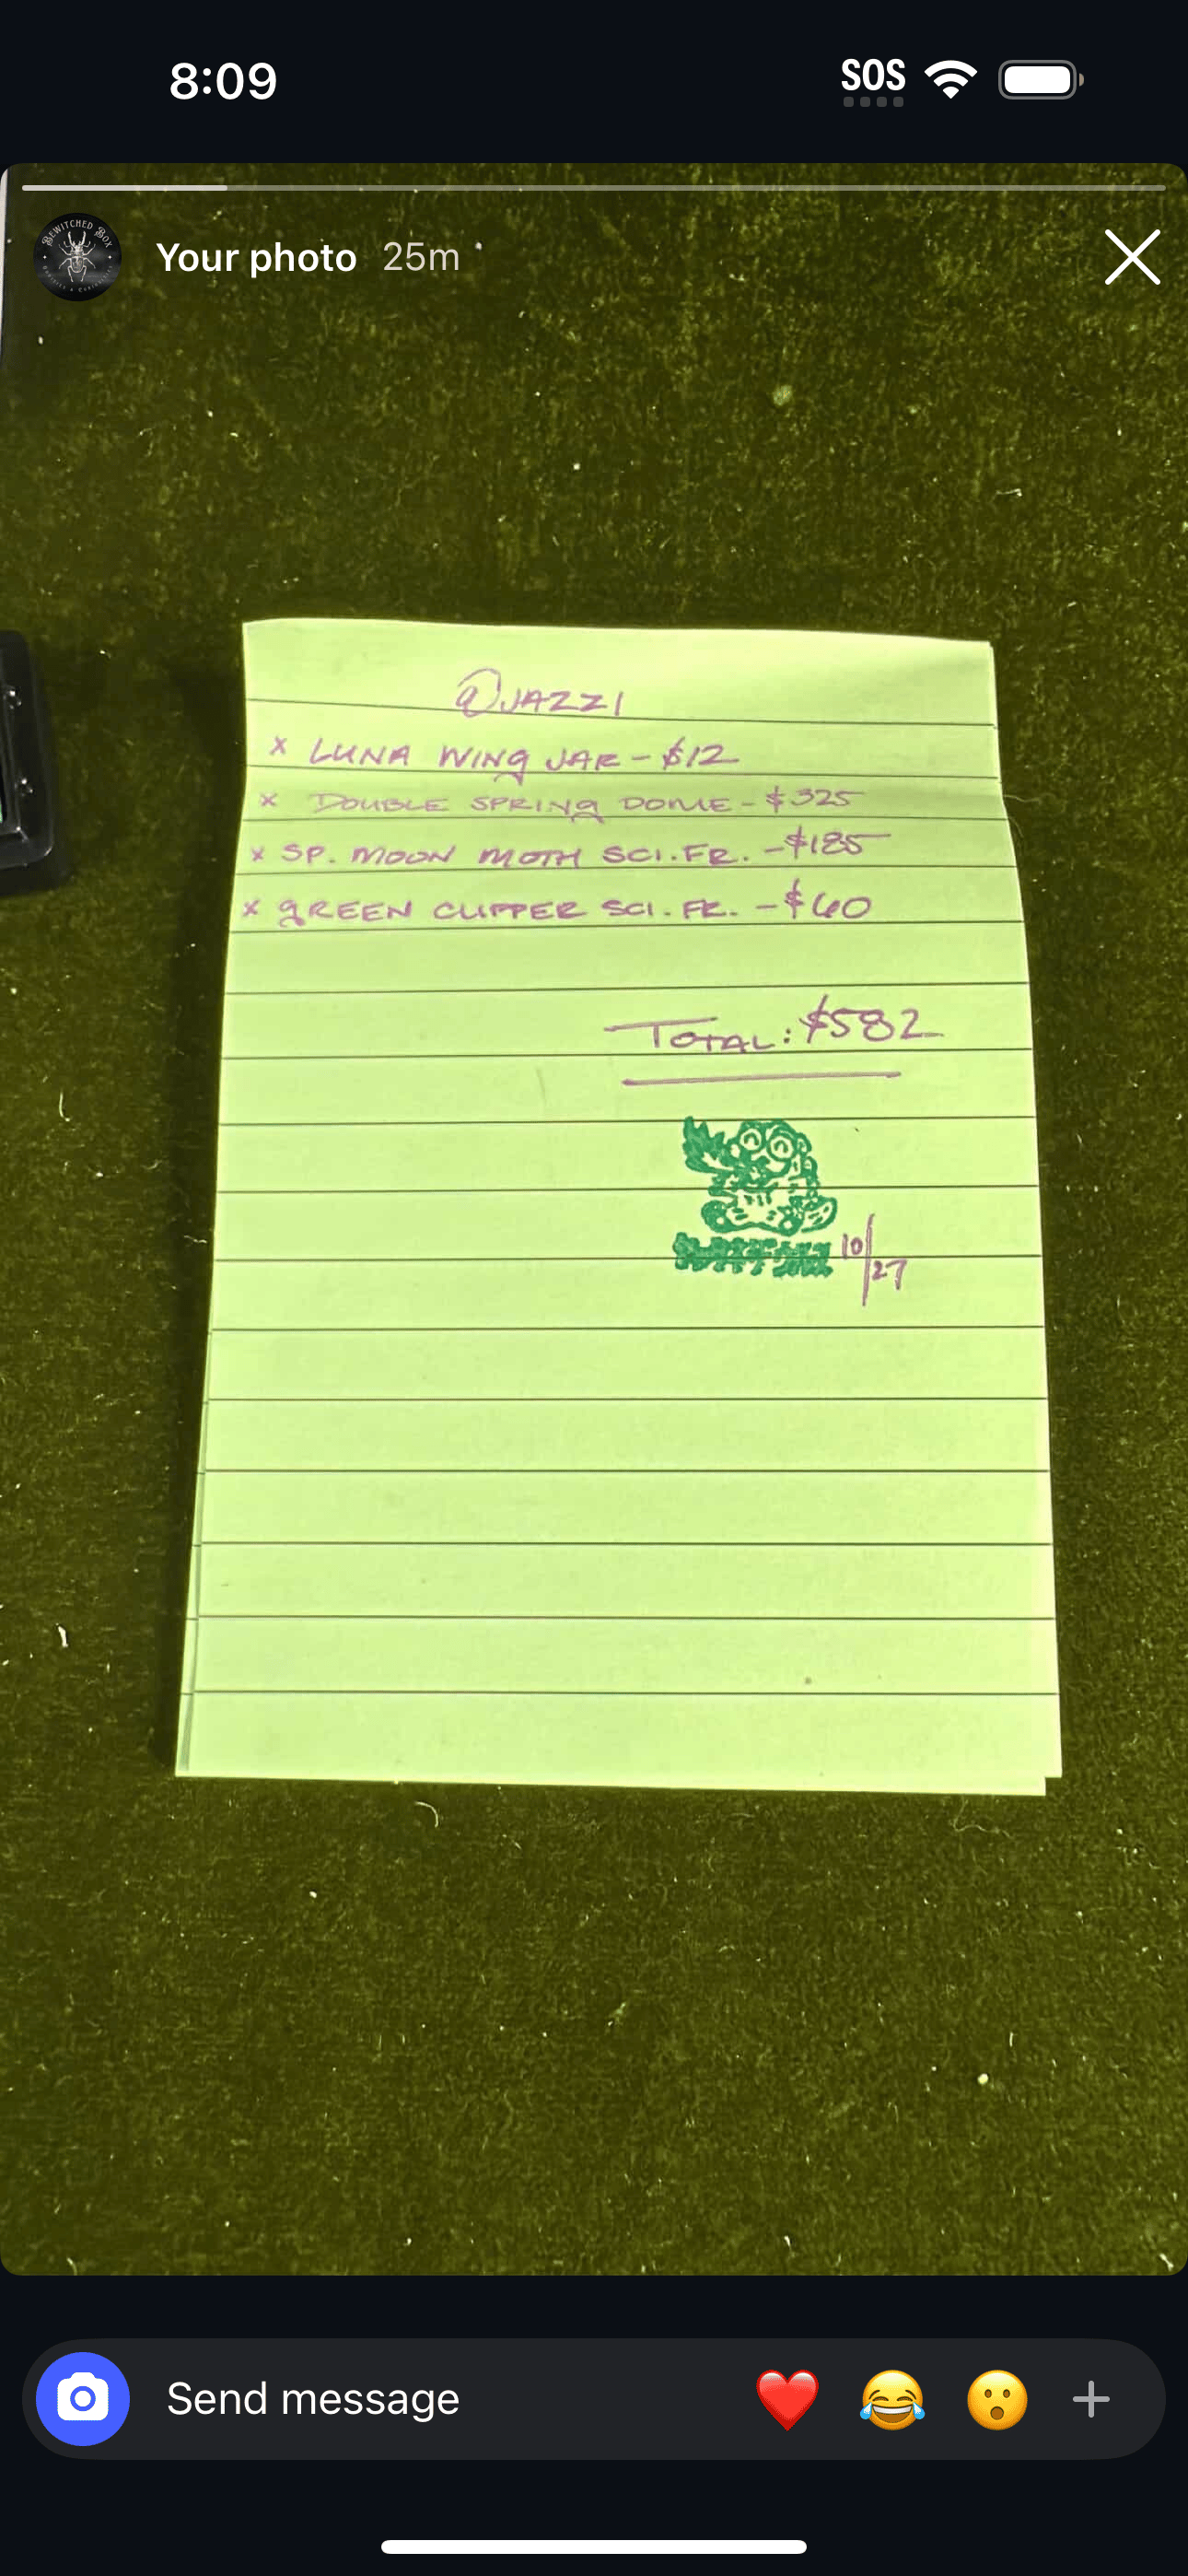 8:09
SOS
BEWITCHED BOX
Your photo 25m
@JAZZI
x LUNA WING JAR - $12
x DOUBLE SPRING DOME - $325
x SP. MOON MOTH SCI. FR. - $185
x GREEN CLIPPER SCI. FR. - $60
TOTAL: $582
10/27
Send message